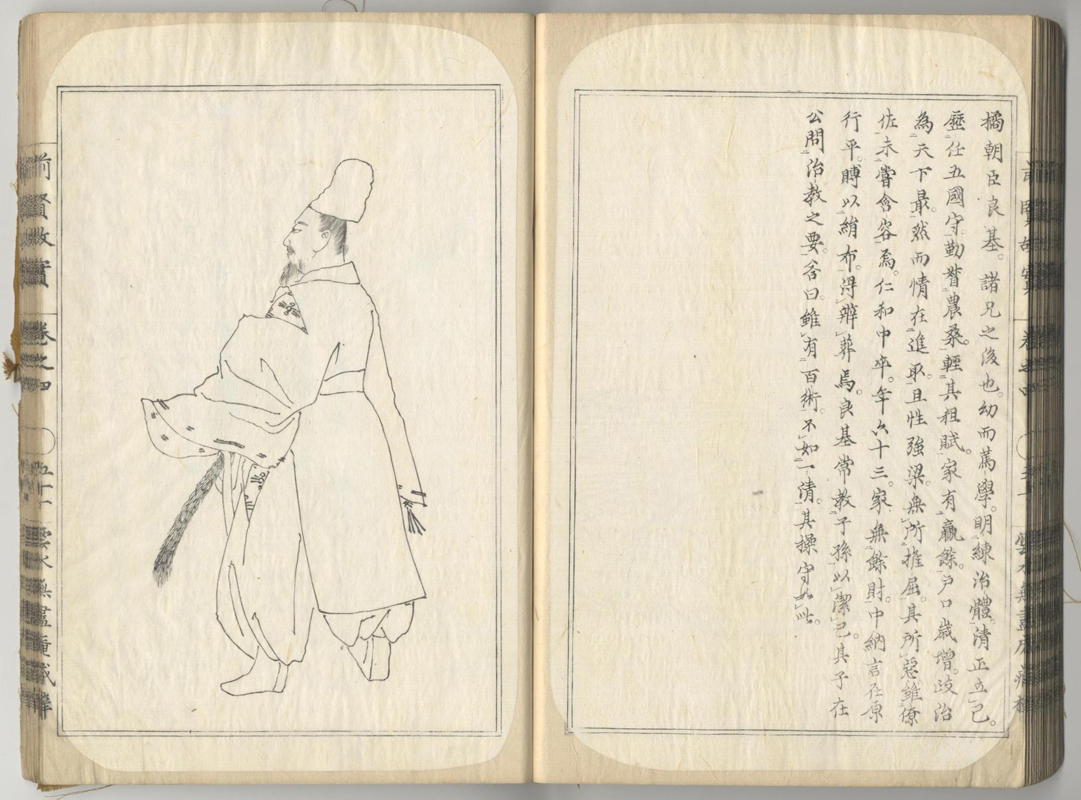 橘朝臣良基。諸兄之後也。幼而篤學。明練治體。清正立己。
歷任五國守。勤督農桑。輕其租賦。家有贏餘。戸口歳增。政治
為天下最。然而情在進取。且性強梁。無所推屈。其所惡雖僚
佐未嘗含容焉。仁和中卒。年六十三。家無餘財。中納言在原
行平。賻以絹布。得辨葬焉。良基常教子孫以潔己。其子在
公問治教之要。答曰。雖有百術。不如一清。其操守如此。
前賢故實
卷之四